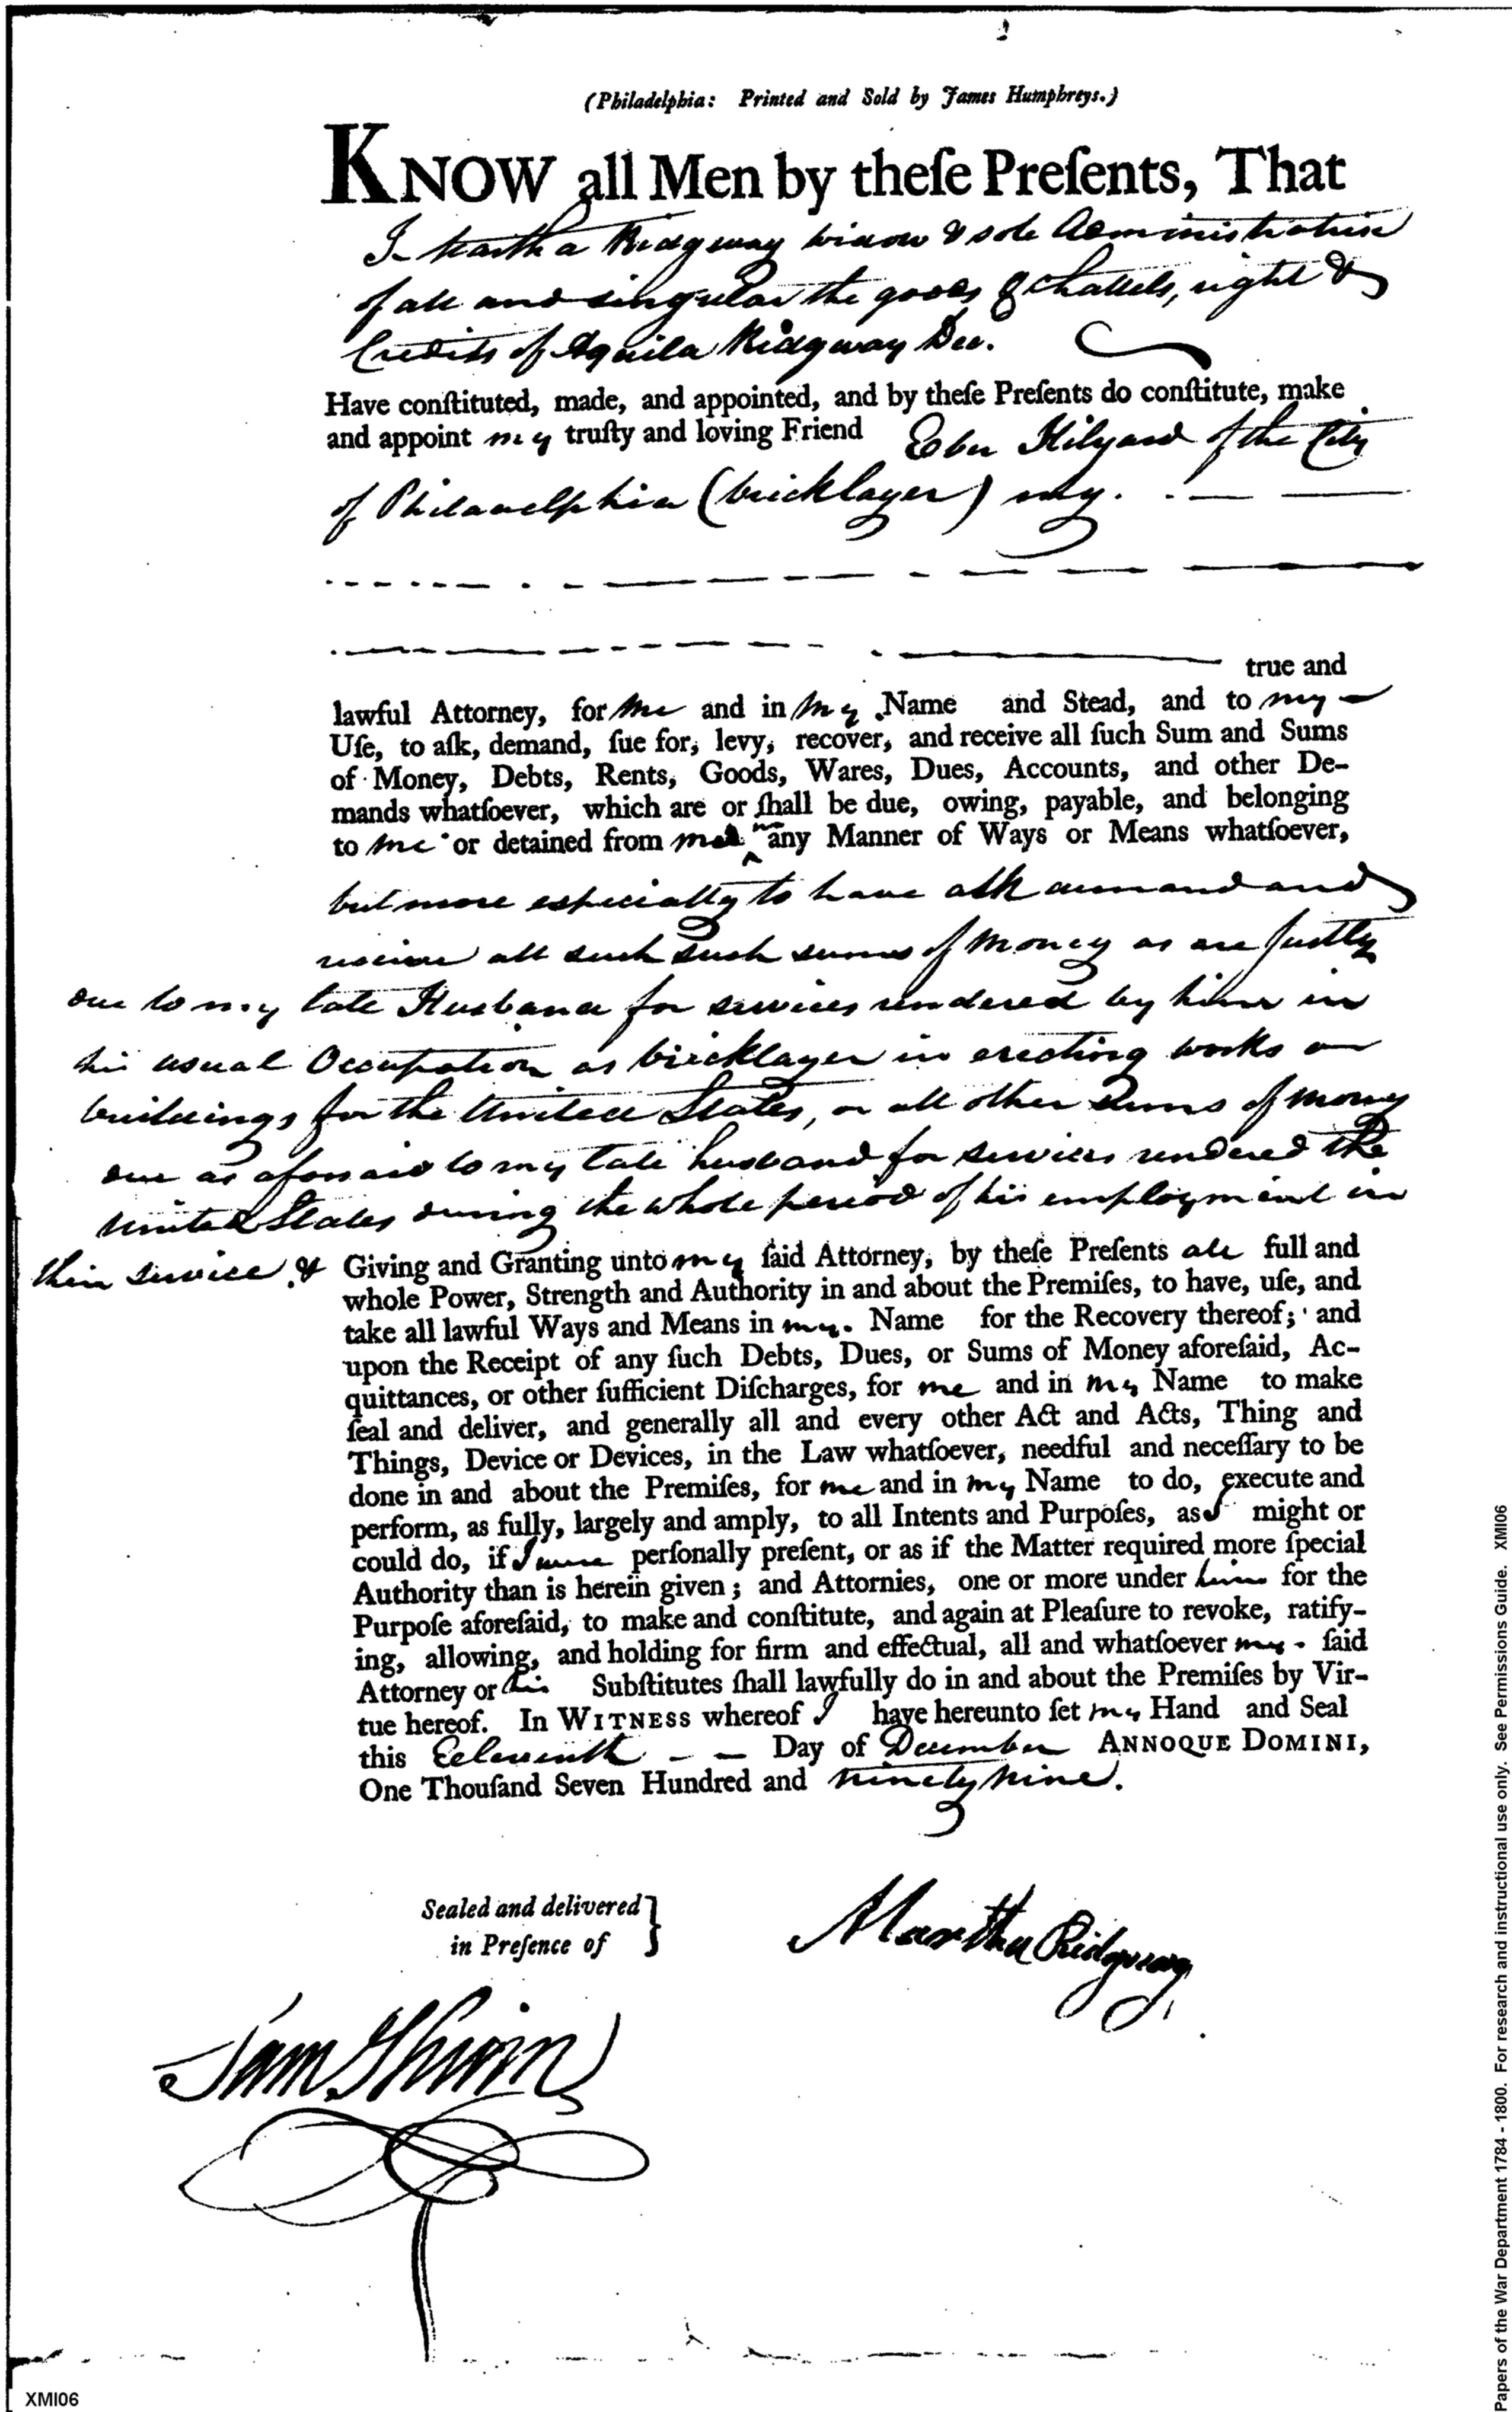 (Philadelphia: Printed and Sold by James Humphreys.)
KNOW all Men by theſe Preſents, That
I Martha Ridgway widow & sole Administratrix
of all and singular the goods & Chattels, right &
Credits of Aquila Ridgway Dec.
Have conſtituted, made, and appointed, and by theſe Preſents do conſtitute, make
and appoint my truſty and loving Friend Eber Hilyard of the City
of Philadelphia (bricklayer) my
true and
lawful Attorney, for me and in my Name and Stead, and to my
Uſe, to aſk, demand, ſue for, levy, recover, and receive all ſuch Sum and Sums
of Money, Debts, Rents, Goods, Wares, Dues, Accounts, and other De-
mands whatſoever, which are or ſhall be due, owing, payable, and belonging
to me or detained from me any Manner of Ways or Means whatſoever,
but more especially to have ask demand and
receive all such such sums of Money as are Justly
due to my late Husband for services rendered by him in
his usual Occupation as bricklayer in erecting works or
buildings for the United States, or all other Sums of Money
due as aforesaid to my late husband for services rendered the
United States during the whole period of his employment in
their service & Giving and Granting unto my ſaid Attorney, by theſe Preſents all full and
whole Power, Strength and Authority in and about the Premiſes, to have, uſe, and
take all lawful Ways and Means in my Name for the Recovery thereof; and
upon the Receipt of any ſuch Debts, Dues, or Sums of Money aforeſaid, Ac-
quittances, or other ſufficient Diſcharges, for me and in my Name to make
ſeal and deliver, and generally all and every other Act and Acts, Thing and
Things, Device or Devices, in the Law whatſoever, needful and neceſſary to be
done in and about the Premiſes, for me and in my Name to do, execute and
perform, as fully, largely and amply, to all Intents and Purpoſes, as I might or
could do, if I were perſonally preſent, or as if the Matter required more ſpecial
Authority than is herein given; and Attornies, one or more under him for the
Purpoſe aforeſaid, to make and conſtitute, and again at Pleaſure to revoke, ratify-
ing, allowing, and holding for firm and effectual, all and whatſoever my ſaid
Attorney or his Subſtitutes ſhall lawfully do in and about the Premiſes by Vir-
tue hereof. In WITNESS whereof I have hereunto ſet my Hand and Seal
this Eeleventh Day of December ANNOQUE DOMINI,
One Thouſand Seven Hundred and ninety nine.
Sealed and delivered }
in Preſence of
Martha Ridgway
XMI06
Papers of the War Department 1784 - 1800. For research and instructional use only. See Permissions Guide. XMI06